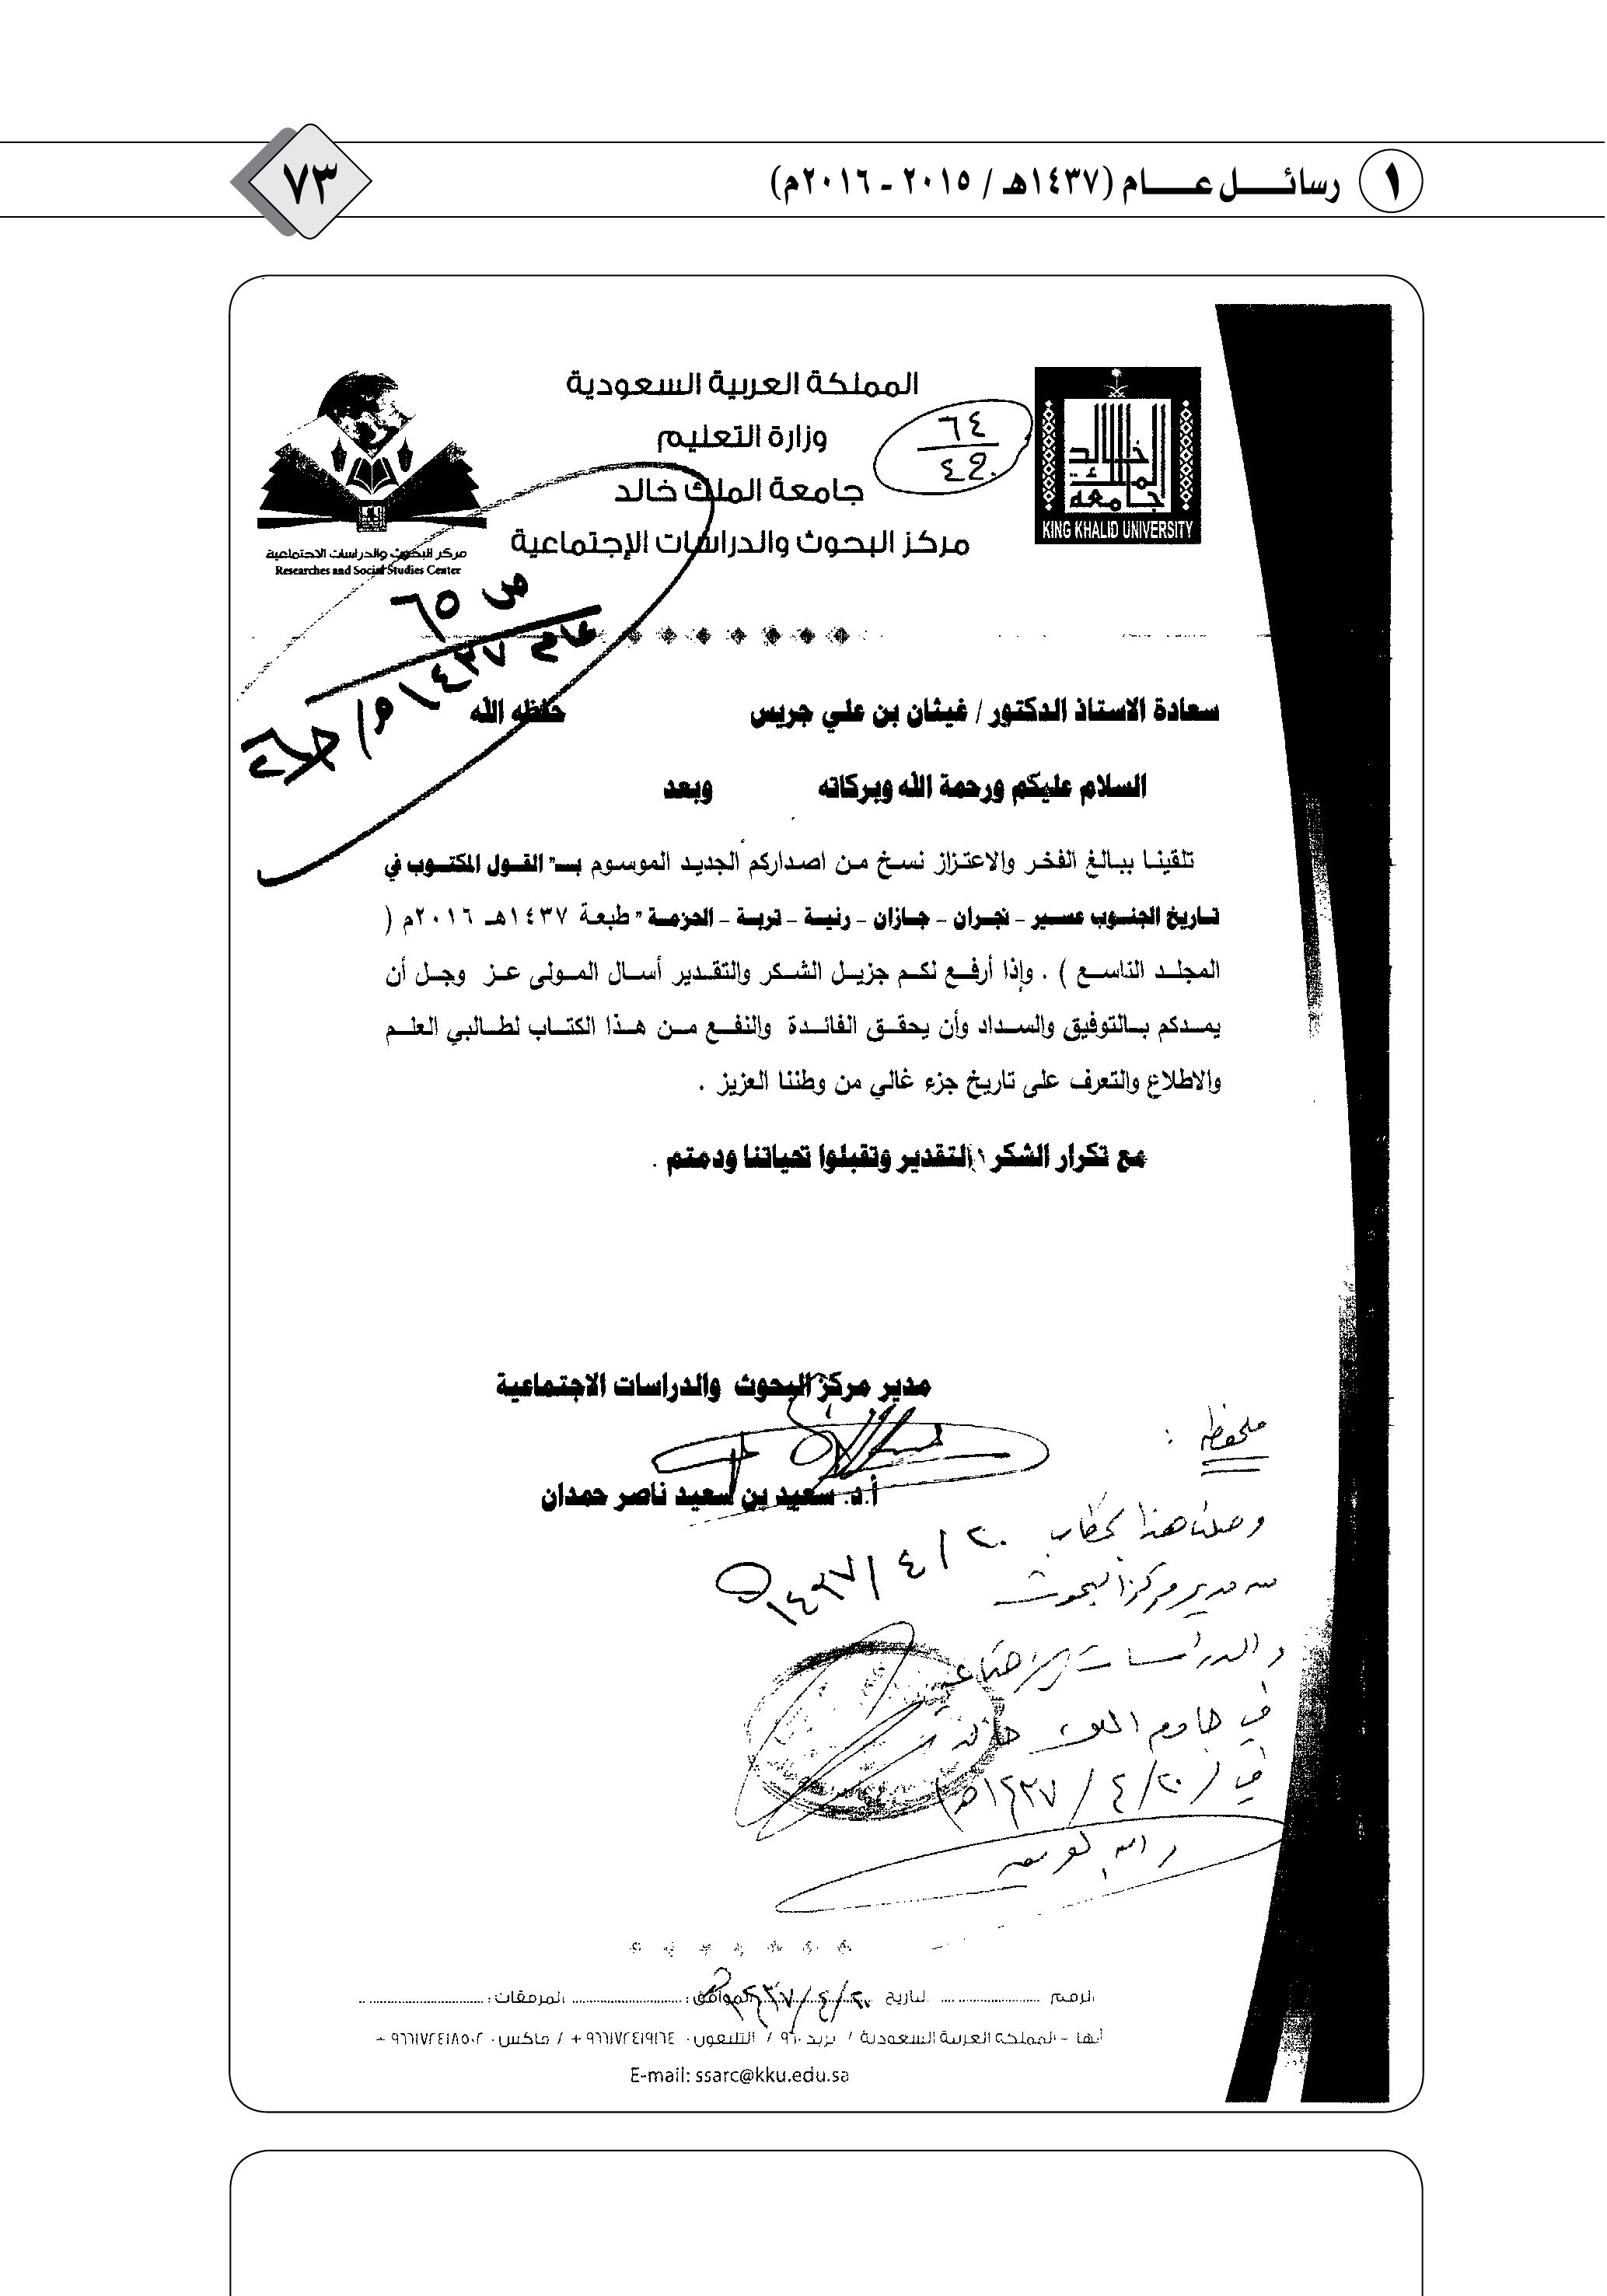 ١ رسائل عام (١٤٣٧هـ / ٢٠١٥ - ٢٠١٦م)
٧٣
المملكة العربية السعودية
وزارة التعليم
جامعة الملك خالد
مركز البحوث والدراسات الإجتماعية
٦٤
KING KHALID UNIVERSITY
مركز البحوث والدراسات الاجتماعية
Researches and Social Studies Center
ص ٦٥
عام ١٤٣٧هـ /
سعادة الاستاذ الدكتور / غيثان بن علي جريس حفظه الله
السلام عليكم ورحمة الله وبركاته وبعد
تلقينا ببالغ الفخر والاعتزاز نسخ من اصداركم الجديد الموسوم بـ" القول المكتوب في
تاريخ الجنوب عسير - نجران - جازان - رنية - تربة - الخرمة " طبعة ١٤٣٧هـ ٢٠١٦م (
المجلد التاسع ) . وإذا أرفع لكم جزيل الشكر والتقدير أسال المولى عز وجل أن
يمدكم بالتوفيق والسداد وأن يحقق الفائدة والنفع من هذا الكتاب لطالبي العلم
والاطلاع والتعرف على تاريخ جزء غالي من وطننا العزيز .
مع تكرار الشكر والتقدير وتقبلوا تحياتنا ودمتم .
مدير مركز البحوث والدراسات الاجتماعية
أ.د. سعيد بن سعيد ناصر حمدان
٢٠ / ٤ / ١٤٣٧هـ
ملحوظة :
وصلنا هذا الخطاب
من مدير مركز البحوث
والدراسات الاجتماعية
في جامعة الملك خالد
في (٢٠ / ٤ / ١٤٣٧هـ)
والله الموفق
الرقم التاريخ ٢٠ / ٤ / ١٤٣٧هـ الموافق: المرفقات:
أبها - المملكة العربية السعودية / بريد ٩٦٠ / التليفون ٩٦٦١٧٢٤١٩١٦٤ + / فاكس ٩٦٦١٧٢٤١٨٥٠٢ +
E-mail: ssarc@kku.edu.sa